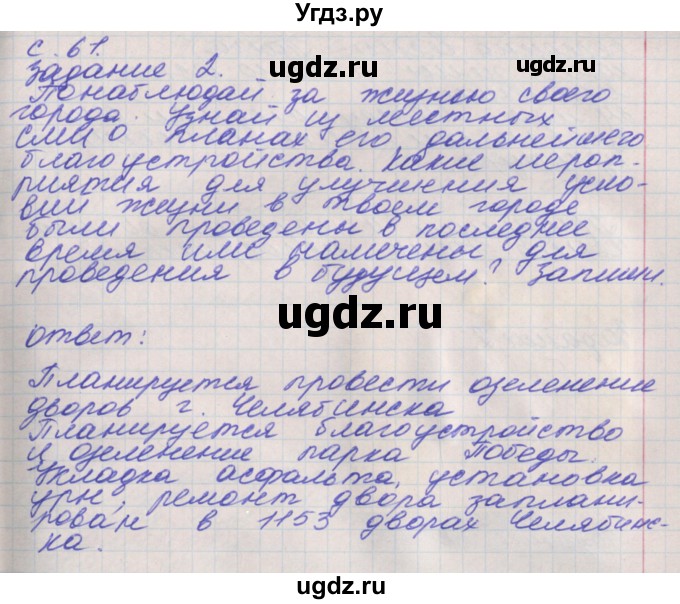 Угдз.ру
с. 61.
задание 2.
Понаблюдай за жизнью своего
города. Узнай из местных
сми о планах его дальнейшего
благоустройства. Какие мероп-
риятия для улучшения усло-
вий жизни в твоем городе
были проведены в последнее
время или намечены для
проведения в будущем? Запиши.
ugdz.ru
ugdz.ru
ugdz.ru
ответ:
Планируется провести озеленение
дворов г. Челябинска
Планируется благоустройство
и озеленение парка Победы.
Укладка асфальта, установка
урн, ремонт двора заплани-
рован в 1153 дворах Челябинс-
ка.
ugdz.ru
ugdz.ru